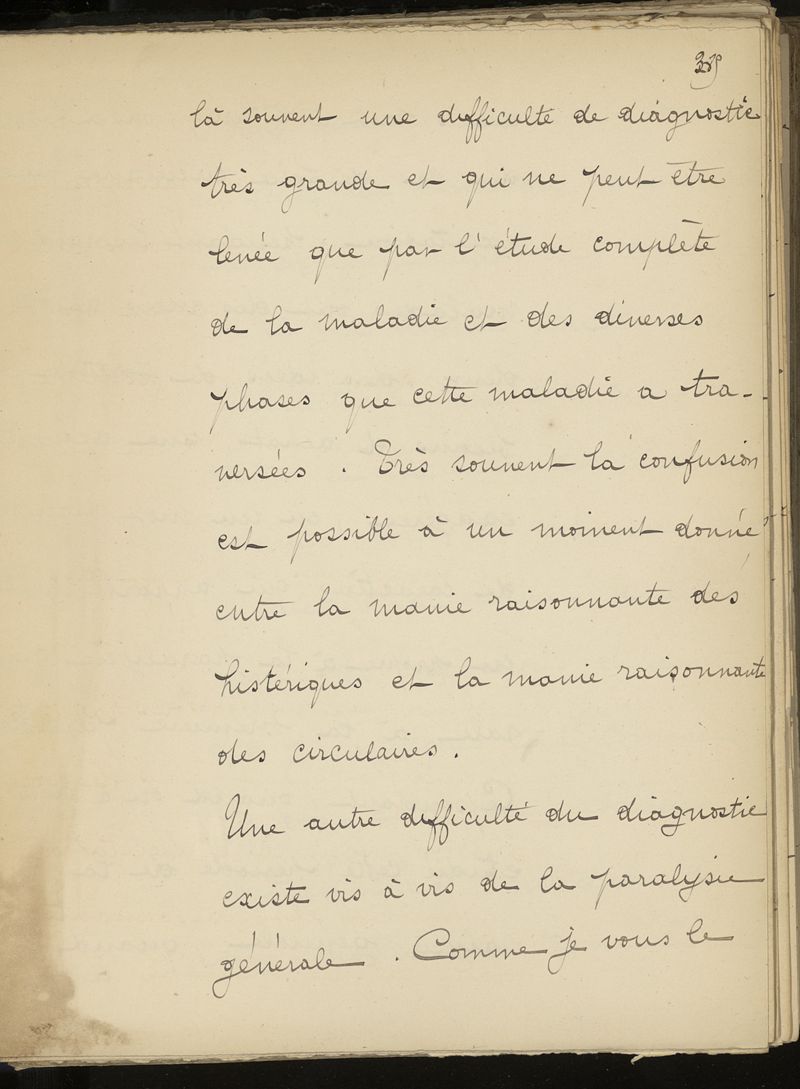 là souvent une difficulté de diagnostic
très grande et qui ne peut être
levée que par l'étude complète
de la maladie et des diverses
phases que cette maladie a tra-
versées. Très souvent la confusion
est possible à un moment donné
entre la manie raisonnante des
histériques et la manie raisonnante
des circulaires.
Une autre difficulté du diagnostic
existe vis à vis de la paralysie
générale. Comme je vous le